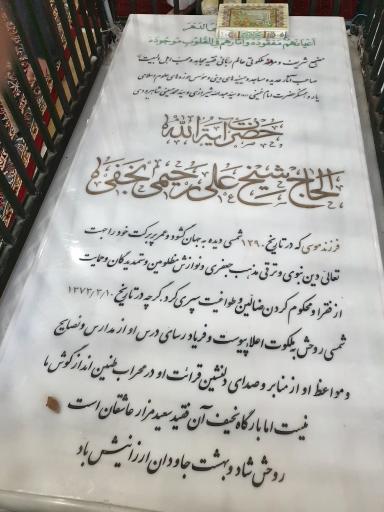 اعیانهم مفقوده و آثارهم فی القلوب موجوده
حضرت آیة الله
الحاج شیخ علی رحیمی نجفی
فرزند موسی که در تاریخ ۱۲۹۰ شمسی دیده به جهان گشود و عمر پربرکت خود را جهت
تعالی دین نبوی و ترقی مذهب جعفری و نوازش مظلومین و ستمدیدگان و حمایت
از فقرا و محکوم کردن ضالین و طواغیت سپری کرد، گرچه در تاریخ ۱۳۷۳/۳/۱۰
شمسی روحش به ملکوت اعلا پیوست و فریاد رسای درس او از مدارس و نصایح
و مواعظ او از منابر و صدای دلنشین قرائت او در محراب طنین انداز گوش ما
نیست اما بارگاه نحیف آن فقید سعید مزار عاشقان است
روحش شاد و بهشت جاودان ارزانیش باد